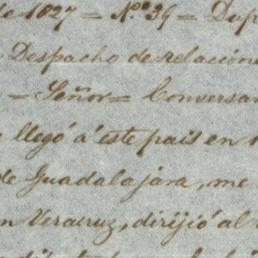 de 1827 = N.º 39 = Dup
Despacho de relacione
= Señor = Conversan
llegó á este pais en
de Guadalajara, me
n Veracruz, dirijió al